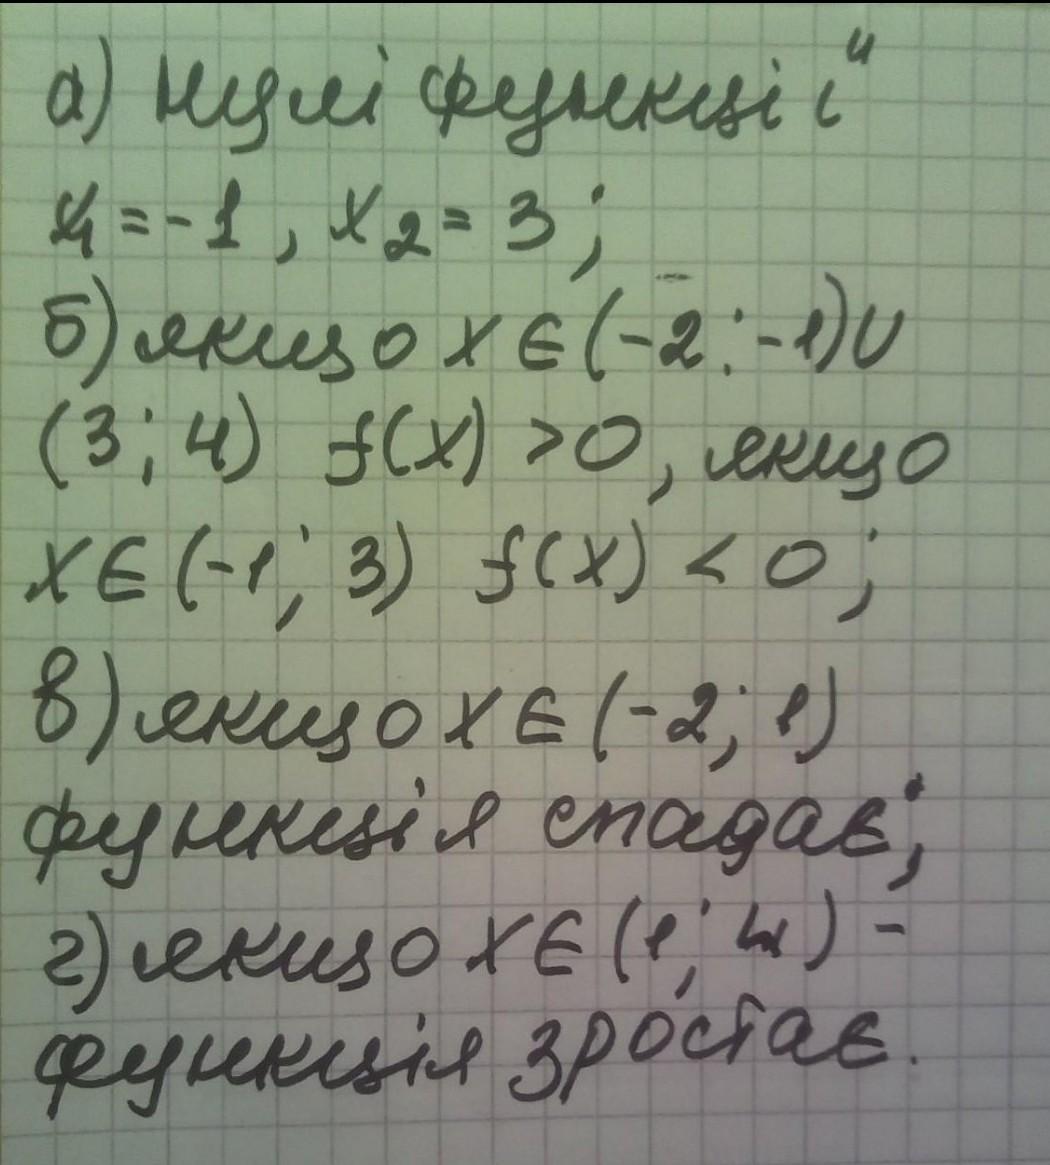 а) нулі функції
x1 = -1, x2 = 3;
б) якщо x є (-2; -1) U
(3; 4) f(x) > 0, якщо
x є (-1; 3) f(x) < 0;
в) якщо x є (-2; 1)
функція спадає;
г) якщо x є (1; 4) -
функція зростає.